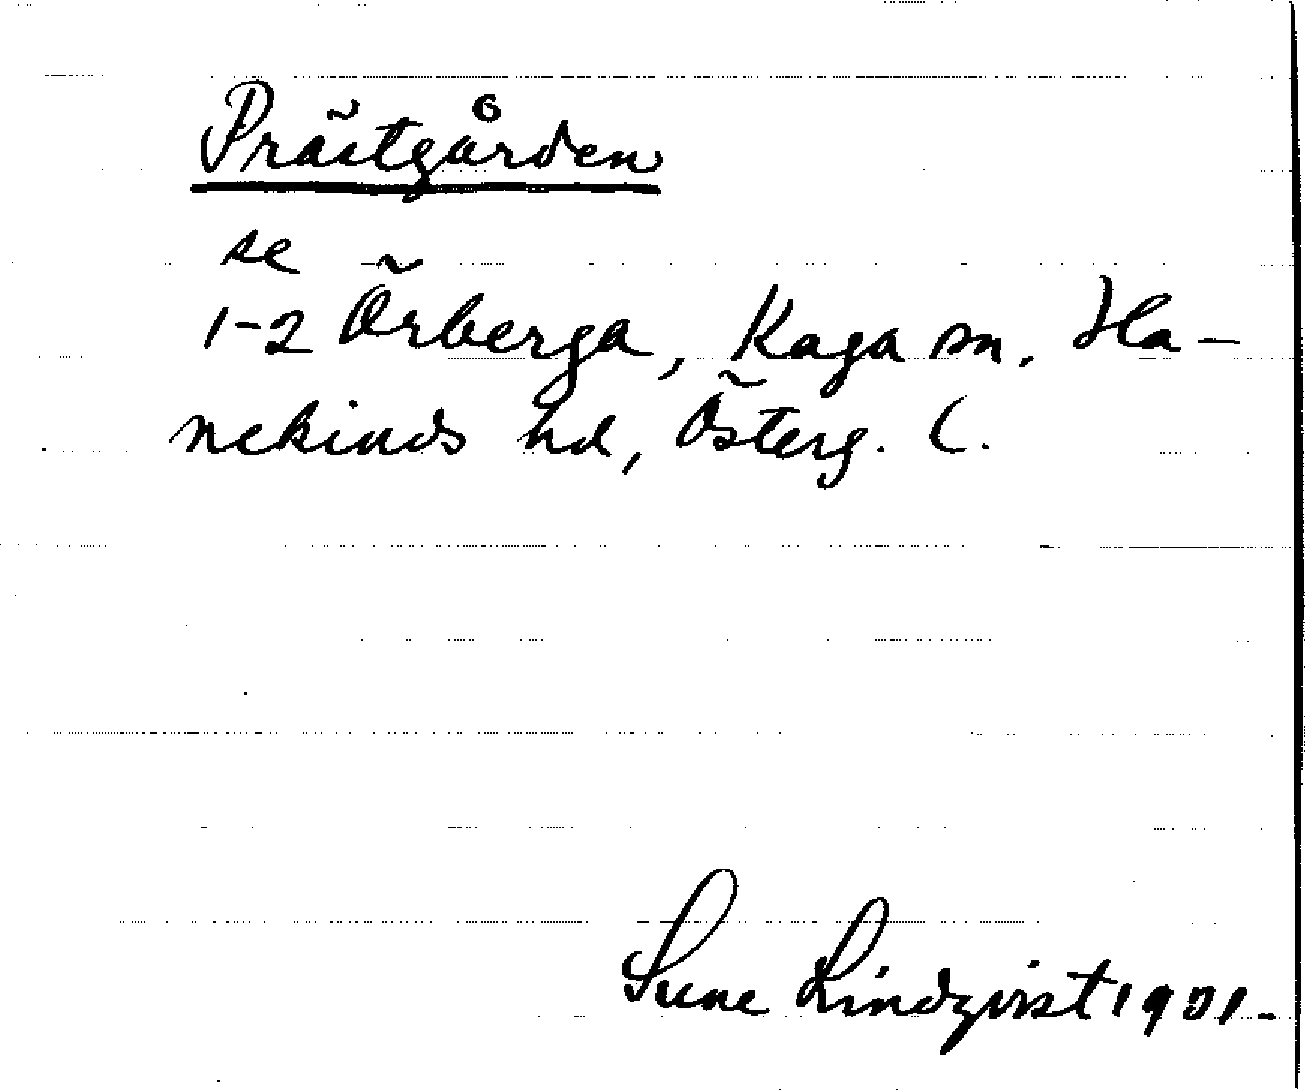 Prästgården
se
1-2 Örberga, Kaga sn. Ha-
nekinds hd, Österg. l.
Sune Lindqvist 1901.